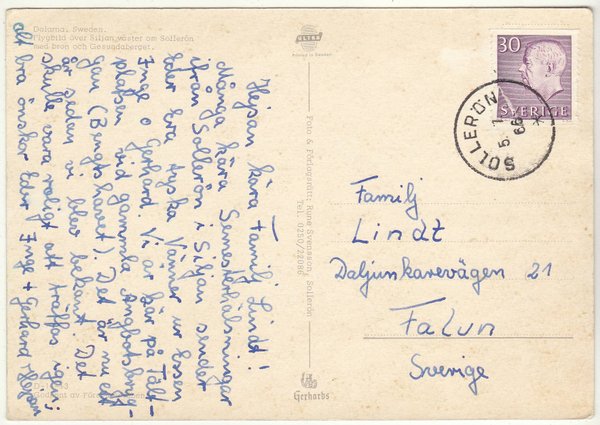 Dalarna. Sweden.
Flygbild över Siljan väster om Sollerön
med bron och Gesundaberget.
Hejsan kära Familj Lindt!
Många kära Semesterhälsningar
ifrån Sollerön i Siljan sender
Eder Era tyska Vänner ur Essen
Inge o Gerhard. Vi är här på Tält-
platsen vid gamla Ångbotsbryg-
gan (Bengtshavet). Det är nu ett
år sedan vi blev bekant. Det
skulle vara roligt att träffas igen,
alt bra önskar Eder Inge + Gerhard
ULTRA
Printed in Sweden
Foto & Förlagsrätt: Rune Svensson, Sollerön
Tel. 0250/22086
Gerhards
30
SVERIGE
SOLLERÖN
5. 7
66
Familj
Lindt
Daljunkarevägen 21
Falun
Sverige